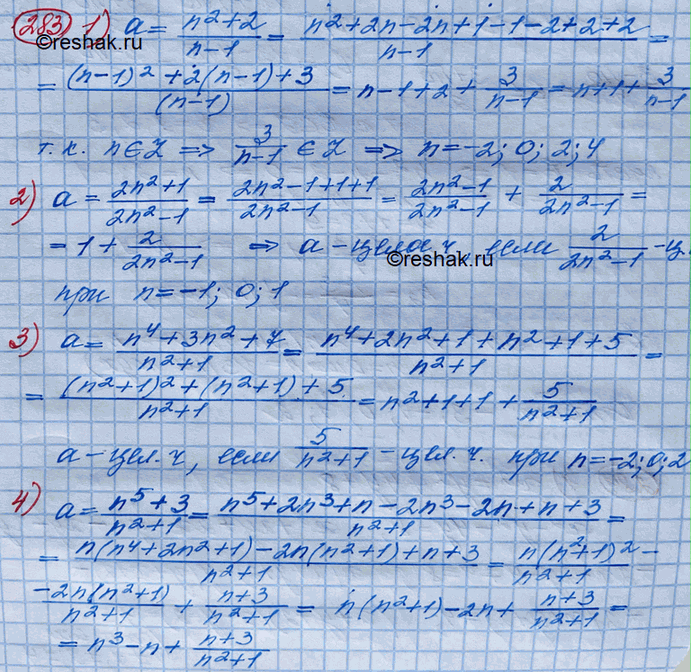 283) 1) a = (n²+2)/(n-1) = (n²+2n-2n+1-1-2+2+2)/(n-1) =
©reshak.ru
= ((n-1)²+2(n-1)+3)/(n-1) = n-1+2+3/(n-1) = n+1+3/(n-1)
т.к. n∈Z ⇒ 3/(n-1) ∈ Z ⇒ n=-2; 0; 2; 4
2) a = (2n²+1)/(2n²-1) = (2n²-1+1+1)/(2n²-1) = (2n²-1)/(2n²-1) + 2/(2n²-1) =
= 1 + 2/(2n²-1) ⇒ a-целое ч. если 2/(2n²-1) -ц.
©reshak.ru
при n=-1; 0; 1
3) a = (n⁴+3n²+7)/(n²+1) = (n⁴+2n²+1+n²+1+5)/(n²+1) =
= ((n²+1)²+(n²+1)+5)/(n²+1) = n²+1+1+5/(n²+1)
a-цел.ч, если 5/(n²+1) -цел.ч. при n=-2; 0; 2
4) a = (n⁵+3)/(n²+1) = (n⁵+2n³+n-2n³-2n+n+3)/(n²+1) =
= (n(n⁴+2n²+1)-2n(n²+1)+n+3)/(n²+1) = n(n²+1)²/(n²+1) -
-2n(n²+1)/(n²+1) + (n+3)/(n²+1) = n(n²+1)-2n+(n+3)/(n²+1) =
= n³-n+(n+3)/(n²+1)